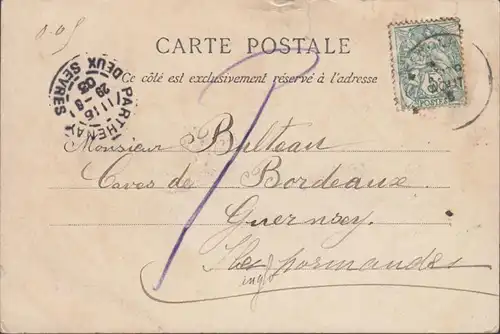 0.05
CARTE POSTALE
Ce côté est exclusivement réservé à l'adresse
PARTHENAY
DEUX SEVRES
POSTES
Monsieur Bulteau
Caves de Bordeaux
Guernsey
Iles normandes